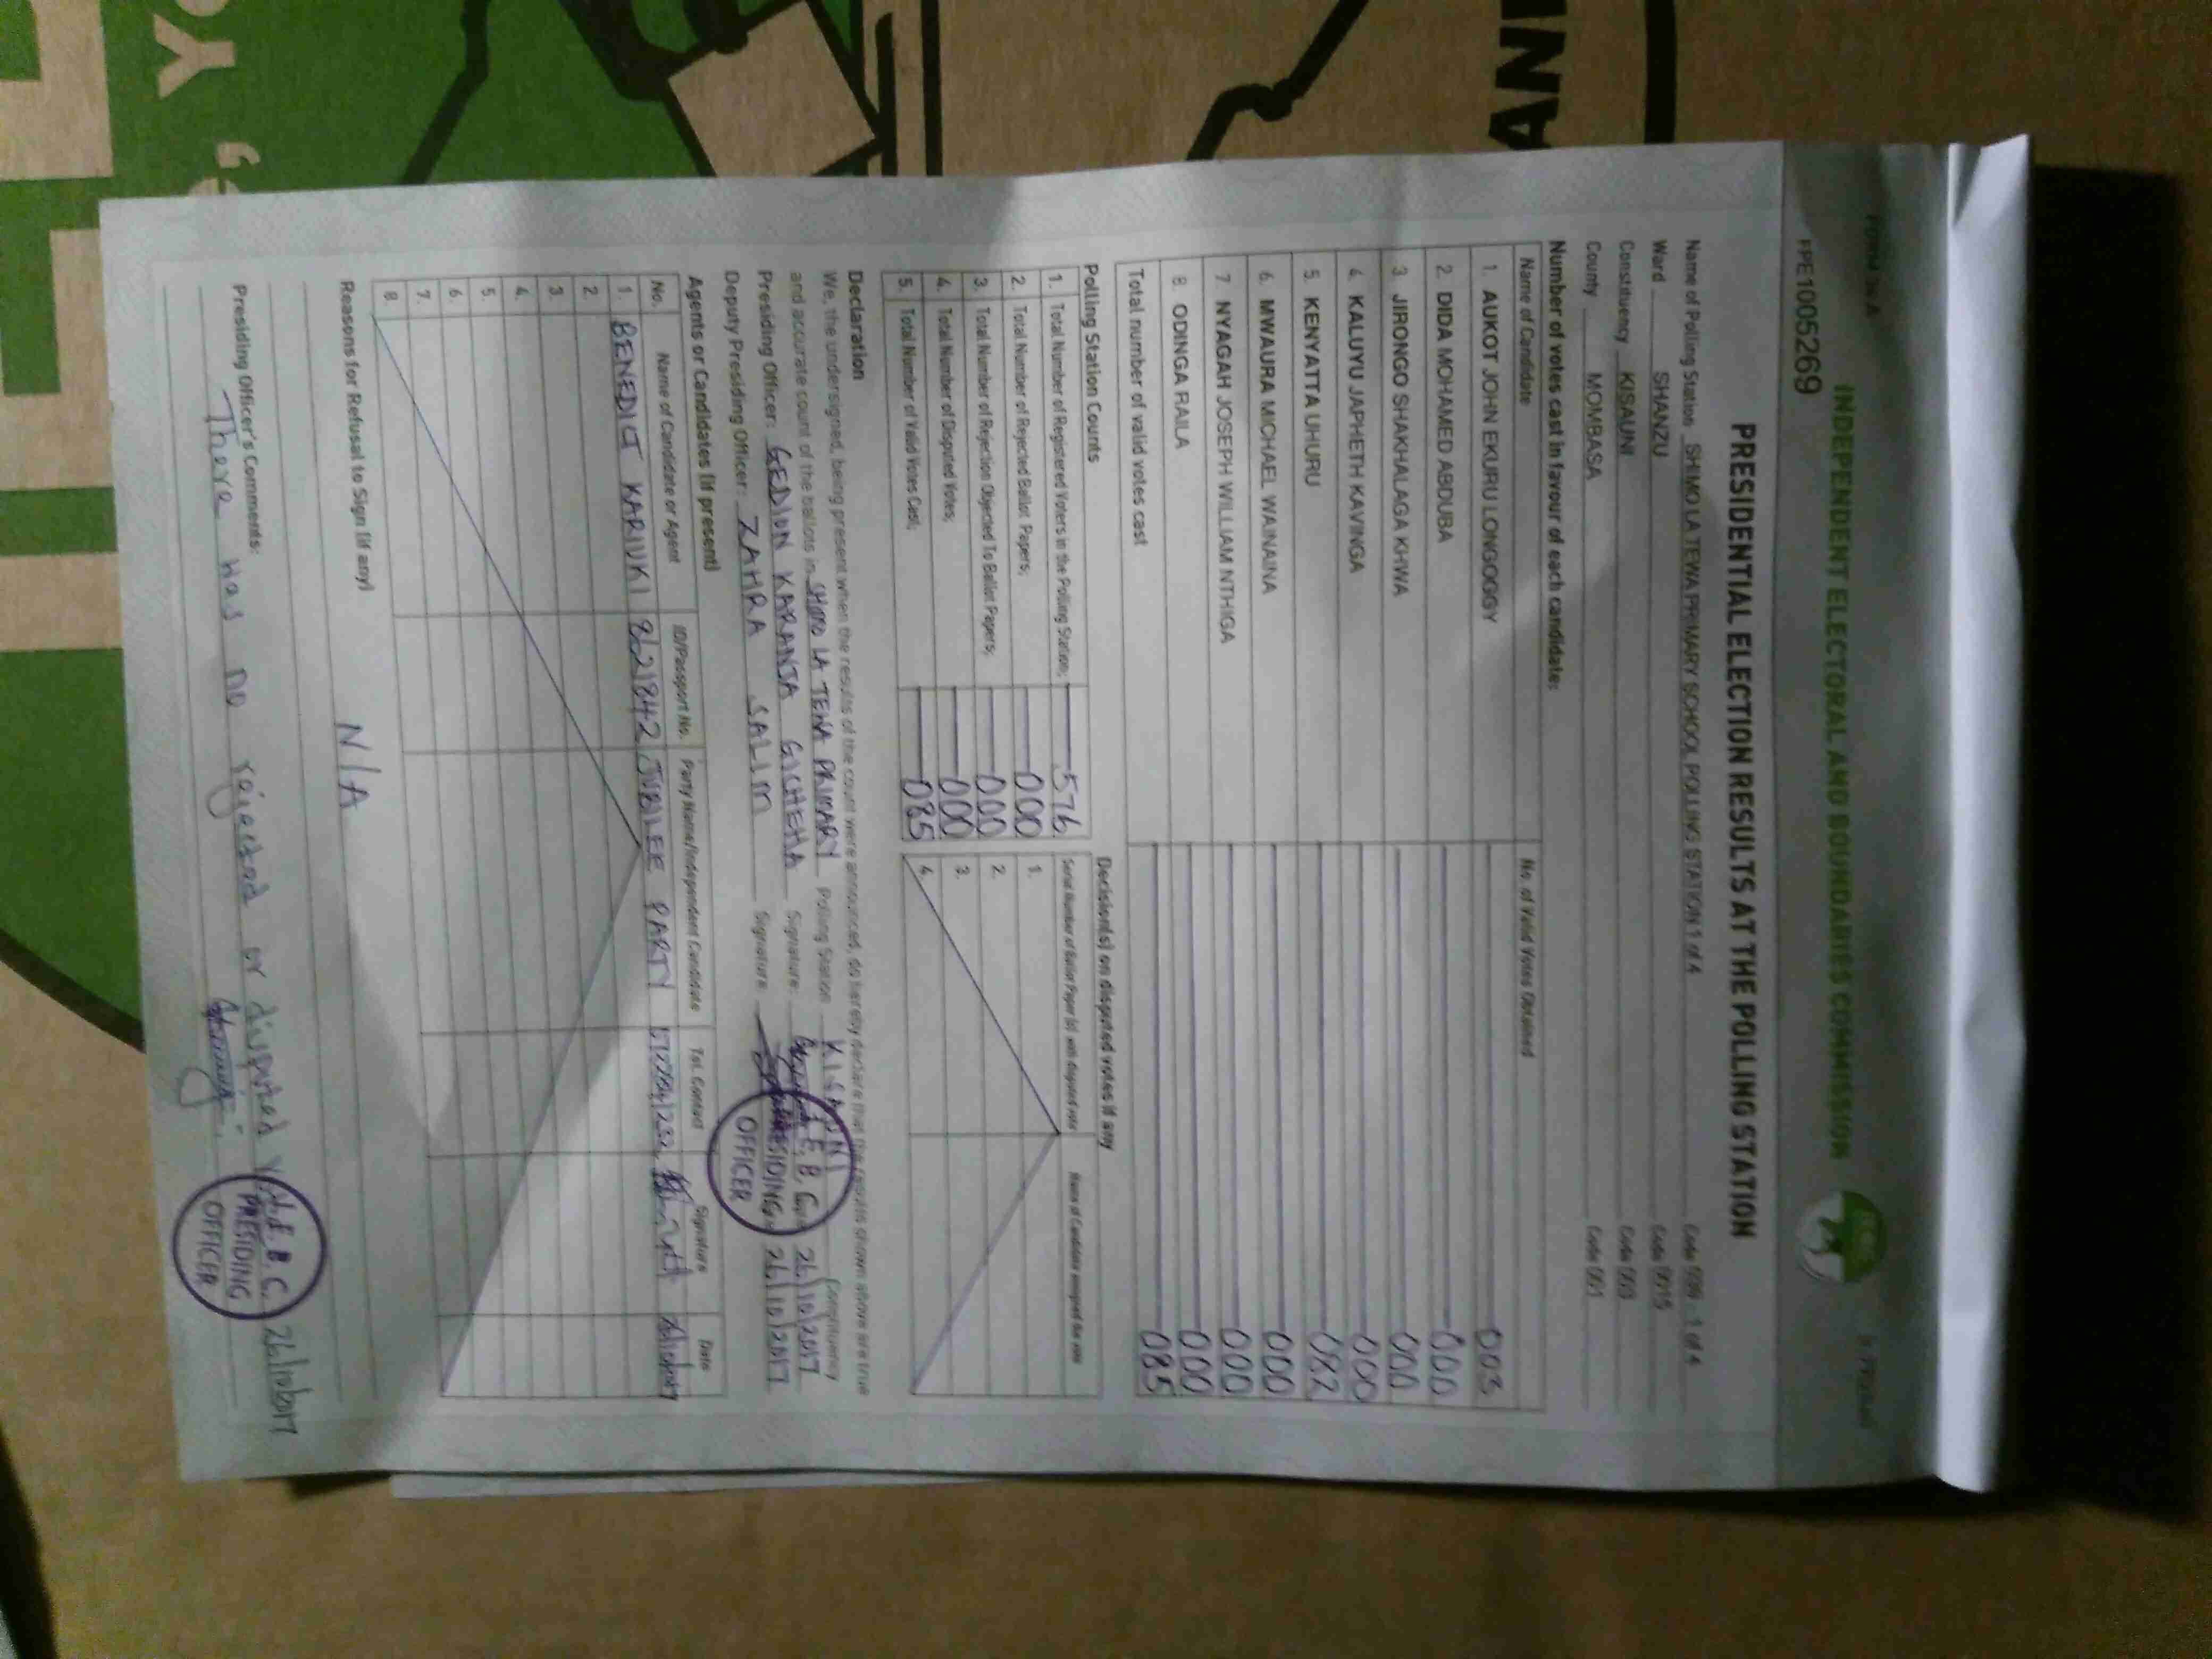 INDEPENDENT ELECTORAL AND BOUNDARIES COMMISSION
PPE1005269
PRESIDENTIAL ELECTION RESULTS AT THE POLLING STATION
Name of Polling Station SHIMO LA TEWA PRIMARY SCHOOL POLLING STATION 1 of 4 Code 1 of 4
Ward SHANZU Code 0015
Constituency KISAUNI Code 003
County MOMBASA Code 001
Number of votes cast in favour of each candidate:
Name of Candidate No. of Valid Votes Obtained
1. AUKOT JOHN EKURU LONGOGGY 003
2. DIDA MOHAMED ABDUBA 000
3. JIRONGO SHAKHALAGA KHWA 000
4. KALUYU JAPHETH KAVINGA 000
5. KENYATTA UHURU 082
6. MWAURA MICHAEL WAINAINA 000
7 NYAGAH JOSEPH WILLIAM NTHIGA 000
8. ODINGA RAILA 000
Total number of valid votes cast 085
Polling Station Counts
1. Total Number of Registered Voters in the Polling Station; 576
2. Total Number of Rejected Ballot Papers; 000
3. Total Number of Rejection Objected To Ballot Papers; 000
4. Total Number of Disputed Votes; 000
5. Total Number of Valid Votes Cast; 085
Decision(s) on disputed votes if any
Serial Number of Ballot Paper (s) with disputed vote Name of Candidate assigned the vote
1.
2.
3.
4.
Declaration
We, the undersigned, being present when the results of the count were announced, do hereby declare that the results shown above are true
and accurate count of the ballots in SHIMO LA TEWA PRIMARY Polling Station KISAUNI Constituency
Presiding Officer: GEDION KARANJA GICHEHA Signature: 26/10/2017
Deputy Presiding Officer: ZAHRA SALIM Signature: 26/10/2017
I. E. B. C.
PRESIDING
OFFICER
Agents or Candidates (if present)
No. Name of Candidate or Agent ID/Passport No. Party Name/Independent Candidate Tel. Contact Signature Date
1. BENEDICT KARIUKI JUBILEE PARTY
2.
3.
4.
5.
6.
7.
8.
Reasons for Refusal to Sign (if any)
N/A
Presiding Officer's Comments:
There was no rejected or disputed
26/10/2017
I. E. B. C.
PRESIDING
OFFICER